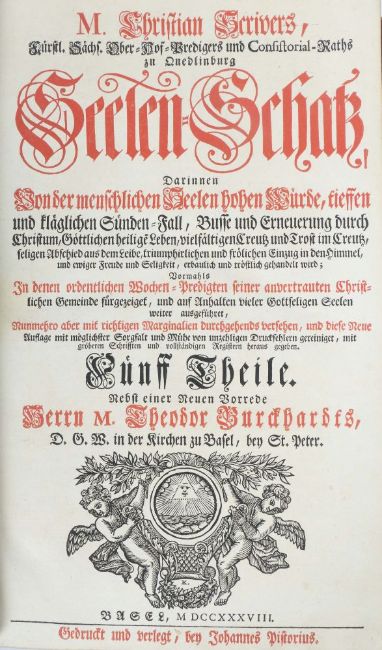 M. Christian Scrivers,
Fürstl. Sächs. Ober-Hof-Predigers und Consistorial-Raths
zu Quedlinburg
Seelen-Schatz,
Darinnen
Von der menschlichen Seelen hohen Würde, tieffen
und kläglichen Sünden-Fall, Busse und Erneuerung durch
Christum, Göttlichen heiligē Leben, vielfältigen Creutz und Trost im Creutz,
seligen Abschied aus dem Leibe, triumphirlichen und frölichen Einzug in den Himmel,
und ewiger Freude und Seligkeit, erbaulich und tröstlich gehandelt wird;
Vormahls
In denen ordentlichen Wochen-Predigten seiner anvertrauten Christ-
lichen Gemeinde fürgezeiget, und auf Anhalten vieler Gottseligen Seelen
weiter ausgeführet,
Nunmehro aber mit richtigen Marginalien durchgehends versehen, und diese Neue
Auflage mit möglichster Sorgfalt und Mühe von unzehligen Druckfehlern gereiniget, mit
gröberen Schrifften und vollständigen Registern heraus gegeben.
Fünff Theile.
Nebst einer Neuen Vorrede
Herrn M. Theodor Burckhardts,
D. G. W. in der Kirchen zu Basel, bey St. Peter.
K.
BASEL, MDCCXXXVIII.
Gedruckt und verlegt, bey Johannes Pistorius.